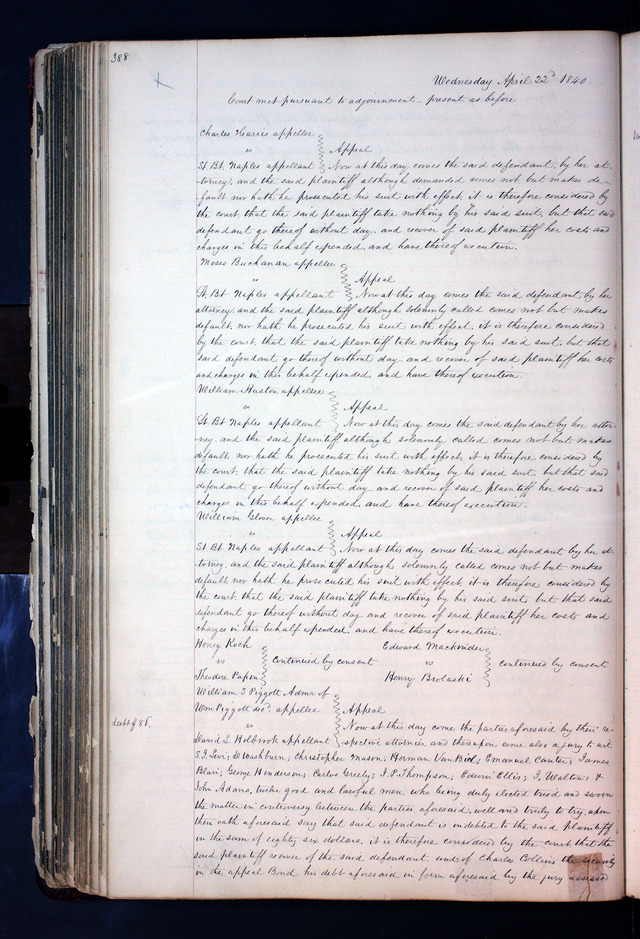 388
Wednesday April 22d 1840
Court met pursuant to adjournment – present as before
Charles Harris appellee
"
Appeal
St. Bt. Naples appellant Now at this day comes the said defendant, by her at-
torney, and the said plaintiff although demanded comes not but makes de-
fault nor hath he prosecuted his suit with effect, it is therefore considered by
the court that the said plaintiff take nothing by his said suit, but that said
defendant go thereof without day, and recover of said plaintiff her costs and
charges in this behalf expended, and have thereof execution.
Moses Buchanan appellee
"
Appeal
St. Bt. Naples appellant Now at this day comes the said defendant by her
attorney, and the said plaintiff although solemnly called comes not but makes
default, nor hath he prosecuted his suit with effect, it is therefore considered
by the court that the said plaintiff take nothing by his said suit but that
said defendant go thereof without day and recover of said plaintiff her costs
and charges in this behalf expended and have thereof execution
William Huston appellee
"
Appeal
St. Bt. Naples appellant Now at this day comes the said defendant by her attor-
ney and the said plaintiff, although solemnly called comes not but makes
default, nor hath he prosecuted his suit with effect, it is therefore considered by
the court, that the said plaintiff take nothing by his said suit but that said
defendant go thereof without day and recover of said plaintiff her costs and
charges in this behalf expended, and have thereof execution.
William Glover appellee
"
Appeal
St. Bt. Naples appellant Now at this day comes the said defendant by her at-
torney, and the said plaintiff although solemnly called comes not but makes
default, nor hath he prosecuted his suit with effect it is therefore considered by
the court that the said plaintiff take nothing by his said suit but that said
defendant go thereof without day and recover of said plaintiff her costs and
charges in this behalf expended, and have thereof execution.
Henry Koch Edward Mackinder
" continued by consent " continued by consent
Theodore Papin Henry Brolaski
William T Piggott Admr. of
Wm Piggott decd. appellee Appeal
Debt $86. Now at this day come the parties aforesaid by their re-
David L Holbrook appellant spective attornies, and thereupon come also a jury to wit
Washburn; Christopher Mason; Herman Van Bids; Emanuel Canter; James
Blair; George Henderson; Carlos Greely; J. P. Thompson; Edwin Ellis; J. Walton; &
John Adams, twelve good and lawful men who being duly elected tried and sworn
the matters in controversy between the parties aforesaid, well and truly to try, upon
their oath aforesaid say that said defendant is indebted to the said plaintiff
in the sum of eighty six dollars. it is therefore considered by the court that the
said plaintiff recover of the said defendant and of Charles Collins the security
in the appeal Bond his debt aforesaid in form aforesaid by the jury assessed